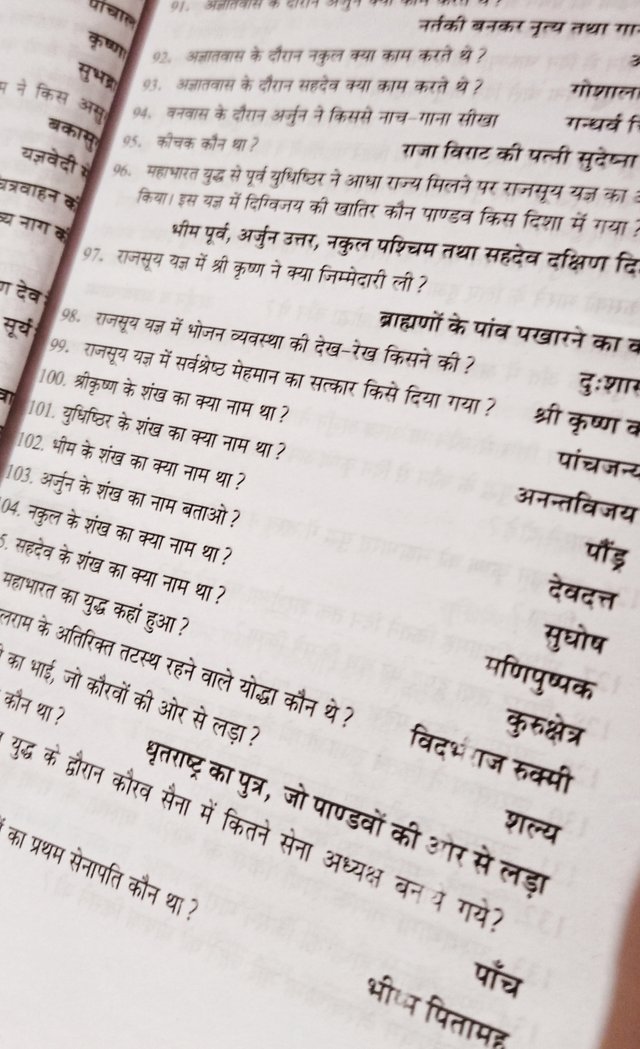 पांचाल
कृष्णा
सुभद्रा
ने किस
यज्ञवेदी
91. अज्ञातवास के दौरान अर्जुन क्या काम करते थे?
नर्तकी बनकर नृत्य तथा
92. अज्ञातवास के दौरान नकुल क्या काम करते थे?
93. अज्ञातवास के दौरान सहदेव क्या काम करते थे?
गोशाला
94. वनवास के दौरान अर्जुन ने किससे नाच-गाना सीखा
गन्धर्व
95. कीचक कौन था?
राजा विराट की पत्नी सुदेष्ना
96. महाभारत युद्ध से पूर्व युधिष्ठिर ने आधा राज्य मिलने पर राजसूय यज्ञ का
किया। इस यज्ञ में दिग्विजय की खातिर कौन पाण्डव किस दिशा में गया?
भीम पूर्व, अर्जुन उत्तर, नकुल पश्चिम तथा सहदेव दक्षिण
97. राजसूय यज्ञ में श्री कृष्ण ने क्या जिम्मेदारी ली?
ब्राह्मणों के पांव पखारने का
98. राजसूय यज्ञ में भोजन व्यवस्था की देख-रेख किसने की?
99. राजसूय यज्ञ में सर्वश्रेष्ठ मेहमान का सत्कार किसे दिया गया?
श्री कृष्ण
100. श्रीकृष्ण के शंख का क्या नाम था?
पांचजन्य
101. युधिष्ठिर के शंख का क्या नाम था?
अनन्तविजय
102. भीम के शंख का क्या नाम था?
पौंड्र
103. अर्जुन के शंख का नाम बताओ?
देवदत्त
04. नकुल के शंख का क्या नाम था?
सुघोष
5. सहदेव के शंख का क्या नाम था?
मणिपुष्पक
महाभारत का युद्ध कहां हुआ?
कुरुक्षेत्र
के अतिरिक्त तटस्थ रहने वाले योद्धा कौन थे?
विदर्भराज रुक्मी
का भाई, जो कौरवों की ओर से लड़ा?
शल्य
कौन था?
धृतराष्ट्र का पुत्र, जो पाण्डवों की ओर से लड़ा
युद्ध के द्वौरान कौरव सैना में कितने सेना अध्यक्ष बनाये गये?
पाँच
का प्रथम सेनापति कौन था?
भीष्म पितामह